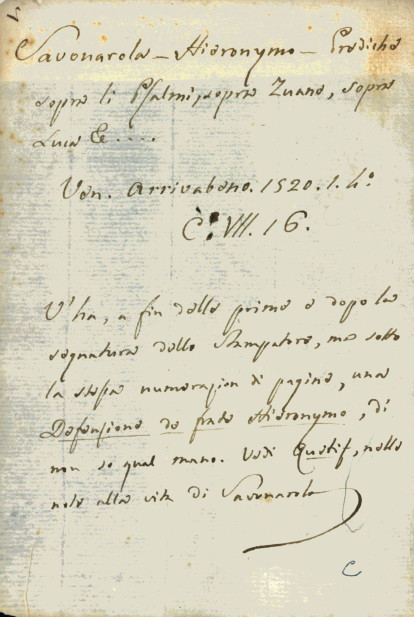 Savonarola - Hieronymo - Prediche
sopra li Psalmi, sopra Zuane, sopra
Luca &c....
Ven. Arrivabene. 1520. 1. 4º
C. VII. 16.
V'ha, a fin delle prime e dopo la
segnatura dello Stampatore, ma sotto
la stessa numerazion di pagine, una
Defensione de frate Hieronymo, di
non so qual mano. Vedi nelle
note alla vita di Savonarola
C